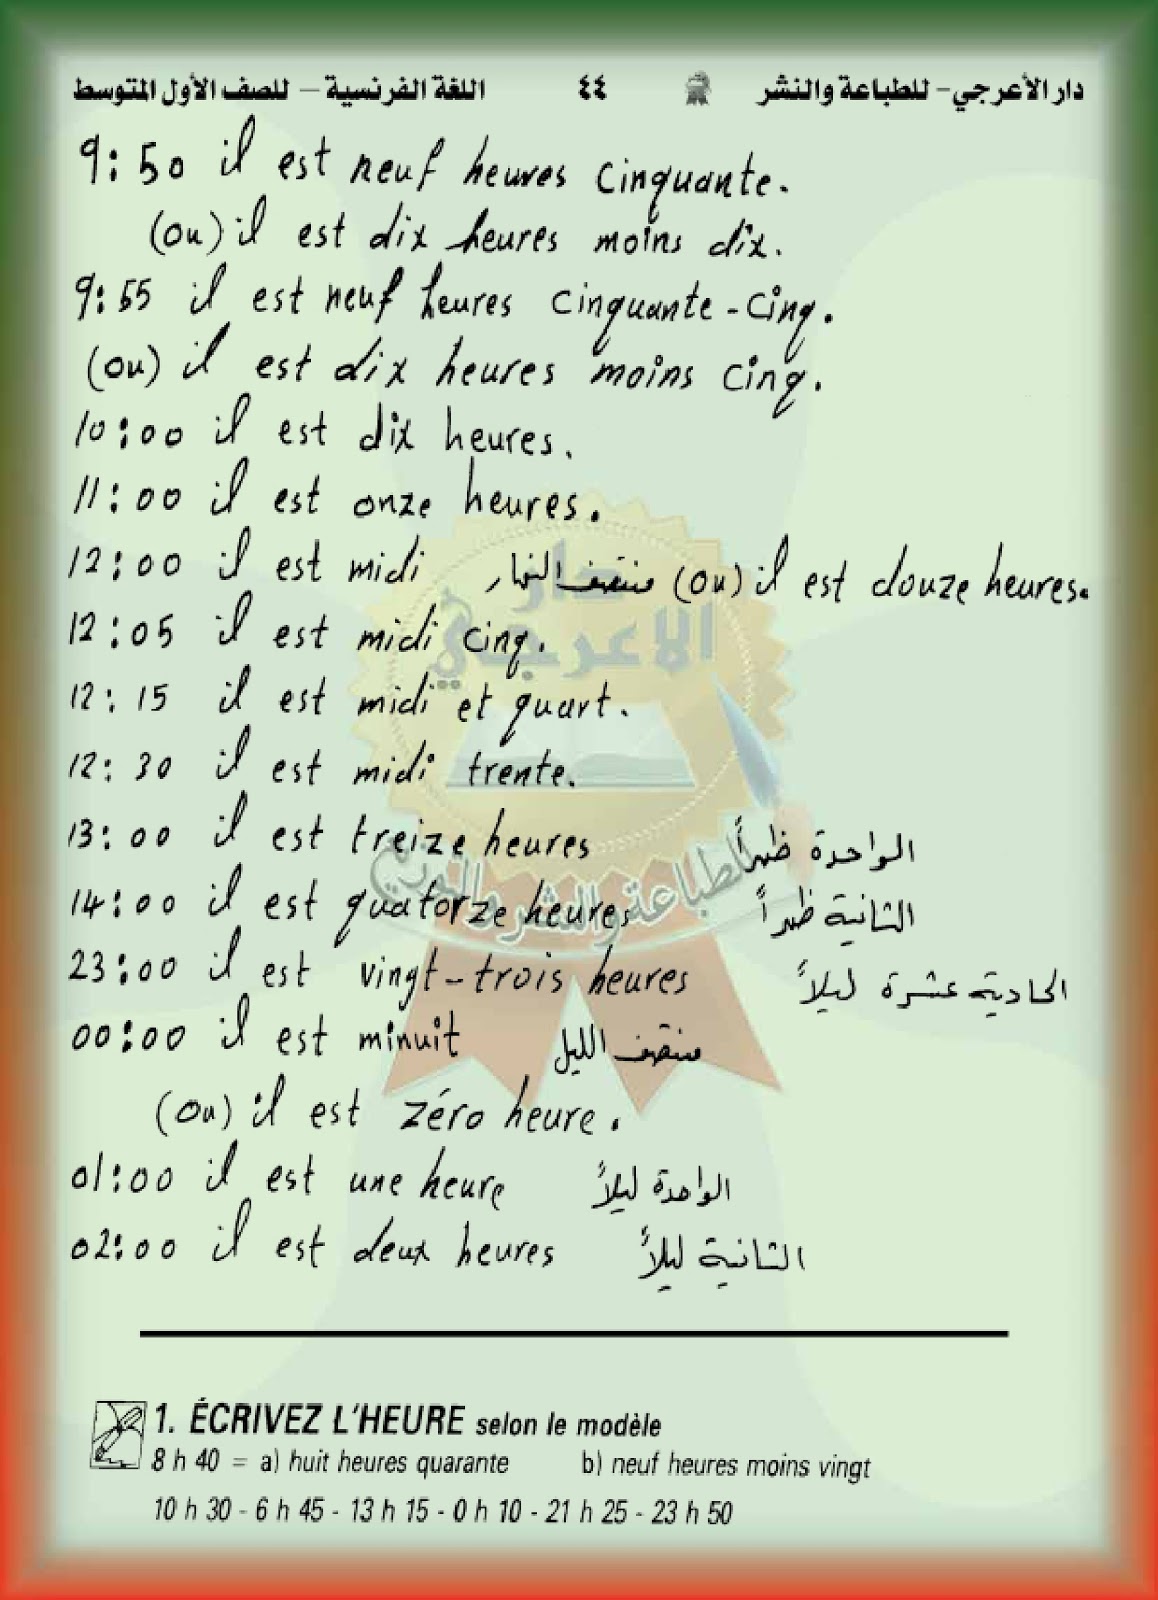 دار الأعرجي - للطباعة والنشر ٤٤ اللغة الفرنسية – للصف الأول المتوسط
9:50 il est neuf heures cinquante.
(ou) il est dix heures moins dix.
9:55 il est neuf heures cinquante-cinq.
(ou) il est dix heures moins cinq.
10:00 il est dix heures.
11:00 il est onze heures.
12:00 il est midi منتصف النهار (ou) il est douze heures.
12:05 il est midi cinq.
12:15 il est midi et quart.
12:30 il est midi trente.
13:00 il est treize heures الواحدة ظهراً
14:00 il est quatorze heures الثانية ظهراً
23:00 il est vingt-trois heures الحادية عشرة ليلاً
00:00 il est minuit منتصف الليل
(ou) il est zéro heure.
01:00 il est une heure الواحدة ليلاً
02:00 il est deux heures الثانية ليلاً
دار
الاعرجي
للطباعة والنشر والتوزيع
1. ÉCRIVEZ L'HEURE selon le modèle
8 h 40 = a) huit heures quarante b) neuf heures moins vingt
10 h 30 - 6 h 45 - 13 h 15 - 0 h 10 - 21 h 25 - 23 h 50